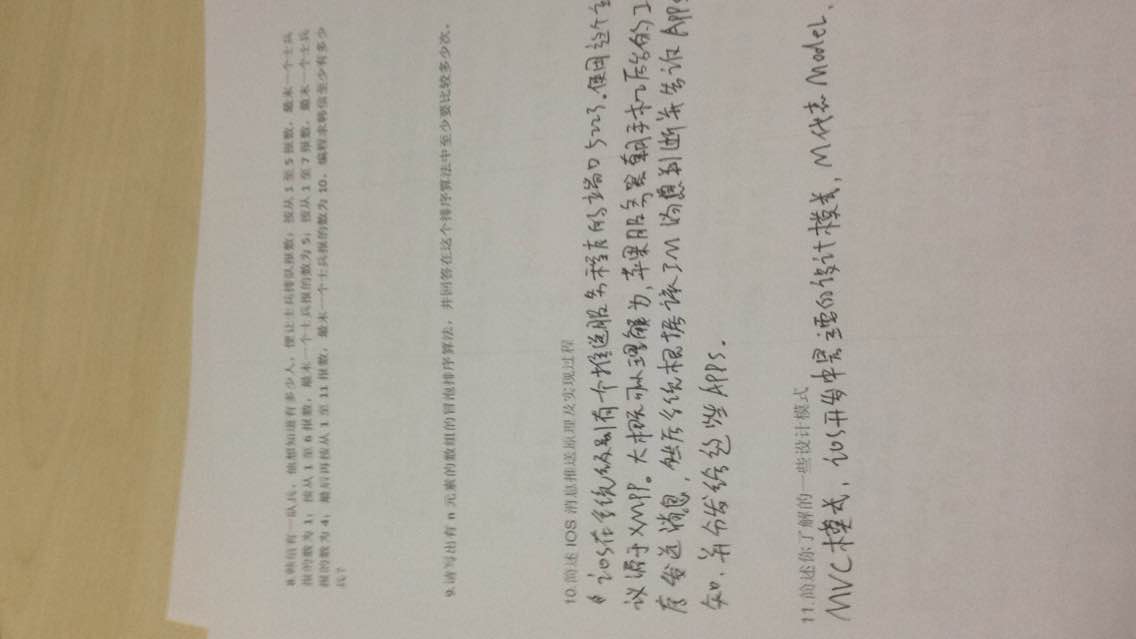 8.韩信有一队兵，他想知道有多少人，便让士兵排队报数：按从 1 至 5 报数，最末一个士兵
报的数为 1；按从 1 至 6 报数，最末一个士兵报的数为 5；按从 1 至 7 报数，最末一个士兵
报的数为 4；最后再按从 1 至 11 报数，最末一个士兵报的数为 10。编程求韩信至少有多少
兵？
9.请写出有 n 元素的数组的冒泡排序算法，并回答在这个排序算法中至少要比较多少次。
10.简述 IOS 消息推送原理及实现过程
ios在系统级别有一个推送服务程序的端口5223。使用这个
议源于XMPP。大概可以理解为，苹果服务器朝手机后台的I
序发送消息，然后系统根据该IM消息判断并告诉Apps
知，并分发给这些APPs。
11.简述你了解的一些设计模式
MVC模式，ios开发中最主要的设计模式，M代表Model，